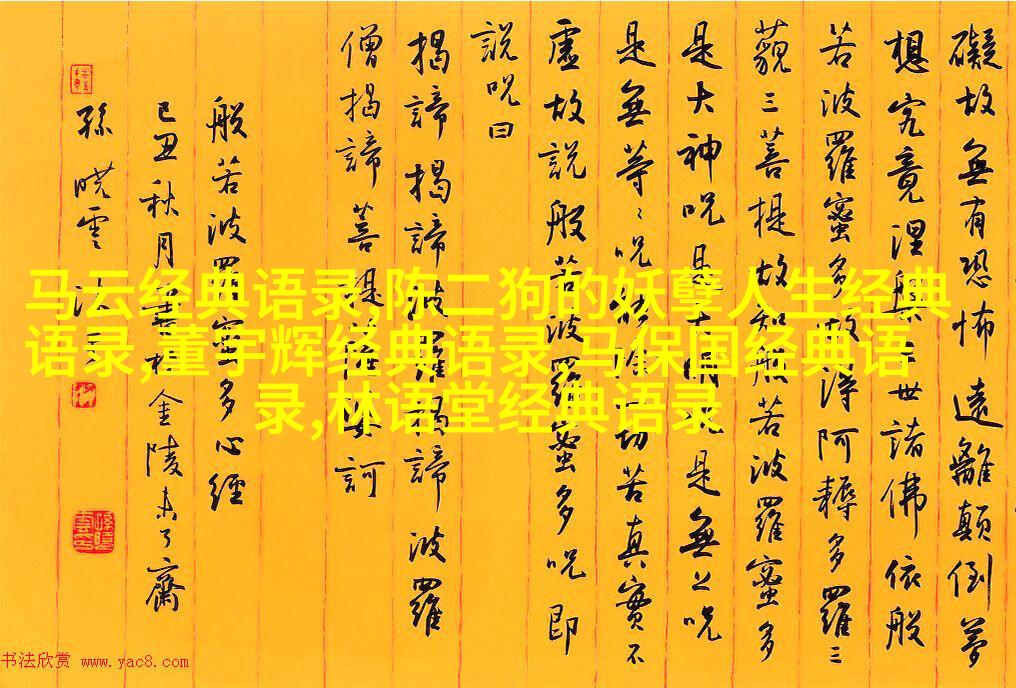 礙故無有恐怖遠離顛倒夢
想究竟涅槃三世諸佛依般
若波羅蜜多故得阿耨多羅三
藐三菩提故知般若波羅蜜多
是大神呪是大明呪是無上呪
是無等〻呪能除一切苦真實不
虛故說般若波羅蜜多呪即
說呪曰
揭諦揭諦波羅揭諦波羅
僧揭諦菩提薩婆訶
般若波羅蜜多心經
己丑秋月書於金陵未了齋
孫曉雲
马云经典语录,陈二狗的妖孽人生经典
语录,董宇辉经典语录,马保国经典语
录,林语堂经典语录
书法欣赏 www.yac8.com